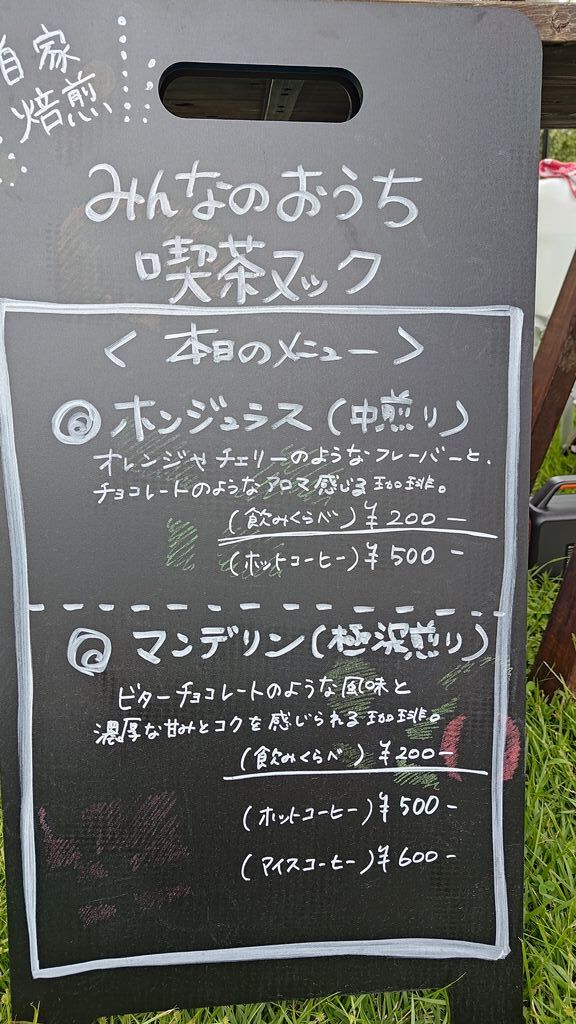 自家
焙煎
みんなのおうち
喫茶ヌック
< 本日のメニュー >
◎ ホンジュラス (中煎り)
オレンジやチェリーのようなフレーバーと、
チョコレートのようなアロマ感じる珈琲。
(飲みくらべ) ¥200-
(ホットコーヒー) ¥500-
◎ マンデリン (極深煎り)
ビターチョコレートのような風味と
濃厚な甘みとコクを感じられる珈琲。
(飲みくらべ) ¥200-
(ホットコーヒー) ¥500-
(アイスコーヒー) ¥600-